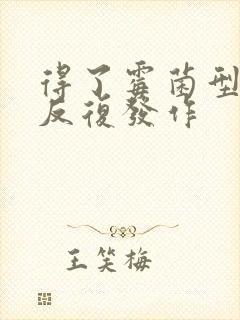 得了霉菌型
反復發作
王笑梅